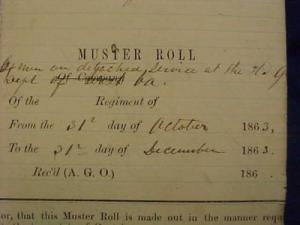 MUSTER ROLL
of men on detached service at the Hd Q
Dept of Va.
Of the Regiment of
From the 31st day of October 1863,
To the 31st day of December 1863.
Rec'd (A. G. O.) 186 .
or, that this Muster Roll is made out in the manner requ